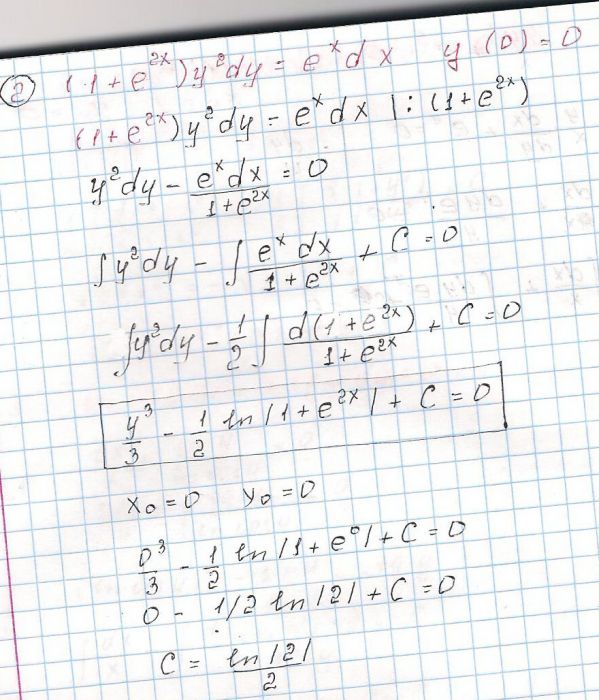 ② (1+e^{2x})y²dy = e^x dx y(0)=0
(1+e^{2x})y²dy = e^x dx |:(1+e^{2x})
y²dy - \frac{e^x dx}{1+e^{2x}} = 0
∫y²dy - ∫\frac{e^x dx}{1+e^{2x}} + C = 0
∫y²dy - \frac{1}{2}∫\frac{d(1+e^{2x})}{1+e^{2x}} + C = 0
\frac{y^3}{3} - \frac{1}{2} ln|1+e^{2x}| + C = 0
x₀=0 y₀=0
\frac{0^3}{3} - \frac{1}{2} ln|1+e^0| + C = 0
0 - 1/2 ln|2| + C = 0
C = \frac{ln|2|}{2}